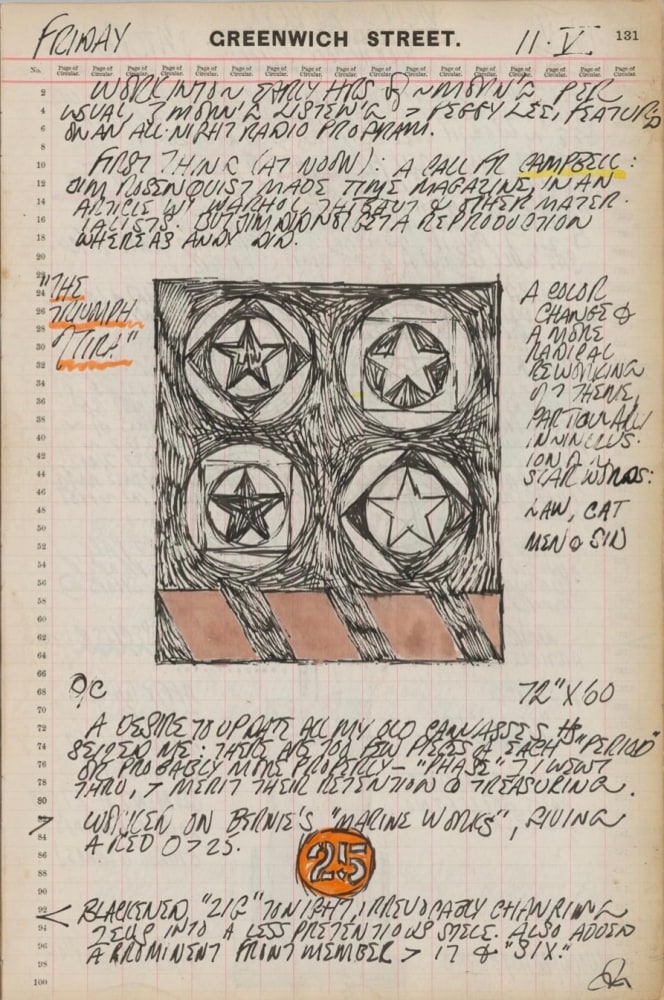 FRIDAY GREENWICH STREET. 11·V 131
No. Page of Circular. Page of Circular. Page of Circular. Page of Circular. Page of Circular. Page of Circular. Page of Circular. Page of Circular. Page of Circular. Page of Circular. Page of Circular. Page of Circular. Page of Circular. Page of Circular. Page of Circular. Page of Circular.
WORK INTO EARLY HRS OF MORN'G PER
USUAL, MORN'G LISTEN'G PEGGY LEE, FEATURED
ON AN ALL-NIGHT RADIO PROGRAM.
FIRST THING (AT NOON): A CALL FR CAMPBELL:
JIM ROSENQUIST MADE TIME MAGAZINE, IN AN
ARTICLE W/ WARHOL, THIBAUT & OTHER MATER-
IALISTS. BUT JIM DID NOT GET A REPRODUCTION
WHEREAS ANDY DID.
"THE
TRIUMPH
"TIRA"
A COLOR
CHANGE &
A MORE
RADICAL
REWORKING
OF THEME,
PARTICULARLY
IN INCLUS-
ION OF
STAR WORDS:
LAW, CAT
MEN & SIN
OC 72" X 60
A DESIRE TO UPDATE ALL MY OLD CANVASSES HAS
SEIZED ME: THERE ARE TOO FEW PIECES OF EACH "PERIOD"
OR PROBABLY MORE PROPERLY — "PHASE" I WENT
THRU, MERIT THEIR RETENTION & TREASURING.
> WORKED ON BERNIE'S "MARINE WORKS", GIVING
A RED 25.
25
< BLACKENED "ZIG" TONIGHT, IRREVOCABLY CHANGING
INTO A LESS PRETENTIOUS STELE. ALSO ADDED
A PROMINENT FRONT MEMBER > IT & "SIX."